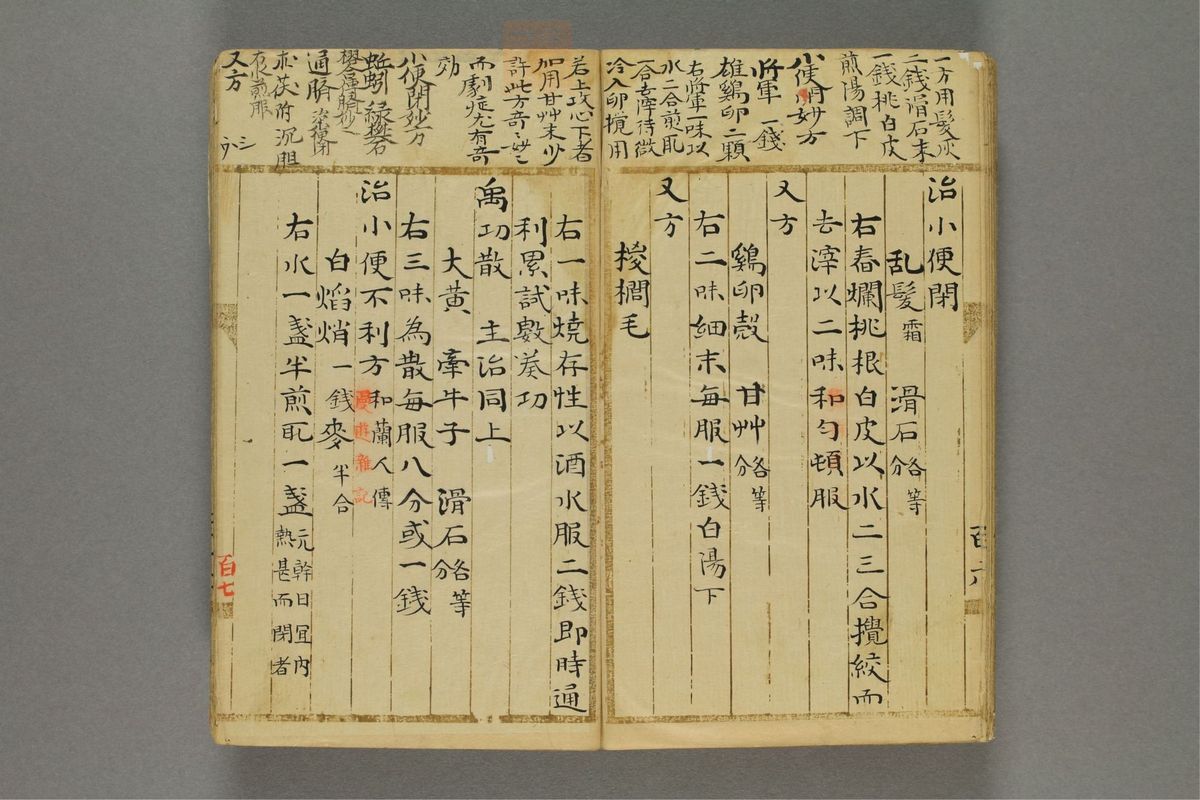 一方用髮灰
二銭滑石末
一銭桃白皮
煎湯調下
小便閉妙方
將軍 一錢
雄鷄卵二顆
右將軍一味以
水二合煎取
一合去滓待微
冷入卵攪用
治小便閉
乱髮霜 滑石各等分
右舂爛桃根白皮以水二三合攪絞而
去滓以二味和匀頓服
又方
鷄卵殼 甘艸各等分
右二味細末每服一錢白湯下
又方
椶櫚毛
百六
若上攻心下者
加用甘艸末少
許此方奇々妙々
而劇症尤有奇
効
小便閉妙方
蚯蚓 緑礬石
通臍 治小便閉
赤茯 附 沉 胆
右煎服
又方
右一味燒存性以酒水服二錢即時通
利累試數葵功
禹功散 主治同上
大黃 牽牛子 滑石各等分
右三味為散每服八分或一錢
治小便不利方 和蘭人傳
漫遊雜記
白焰焇一錢 麥半合
右水一盞半煎取一盞 元幹曰宜內熱甚而閉者
百七